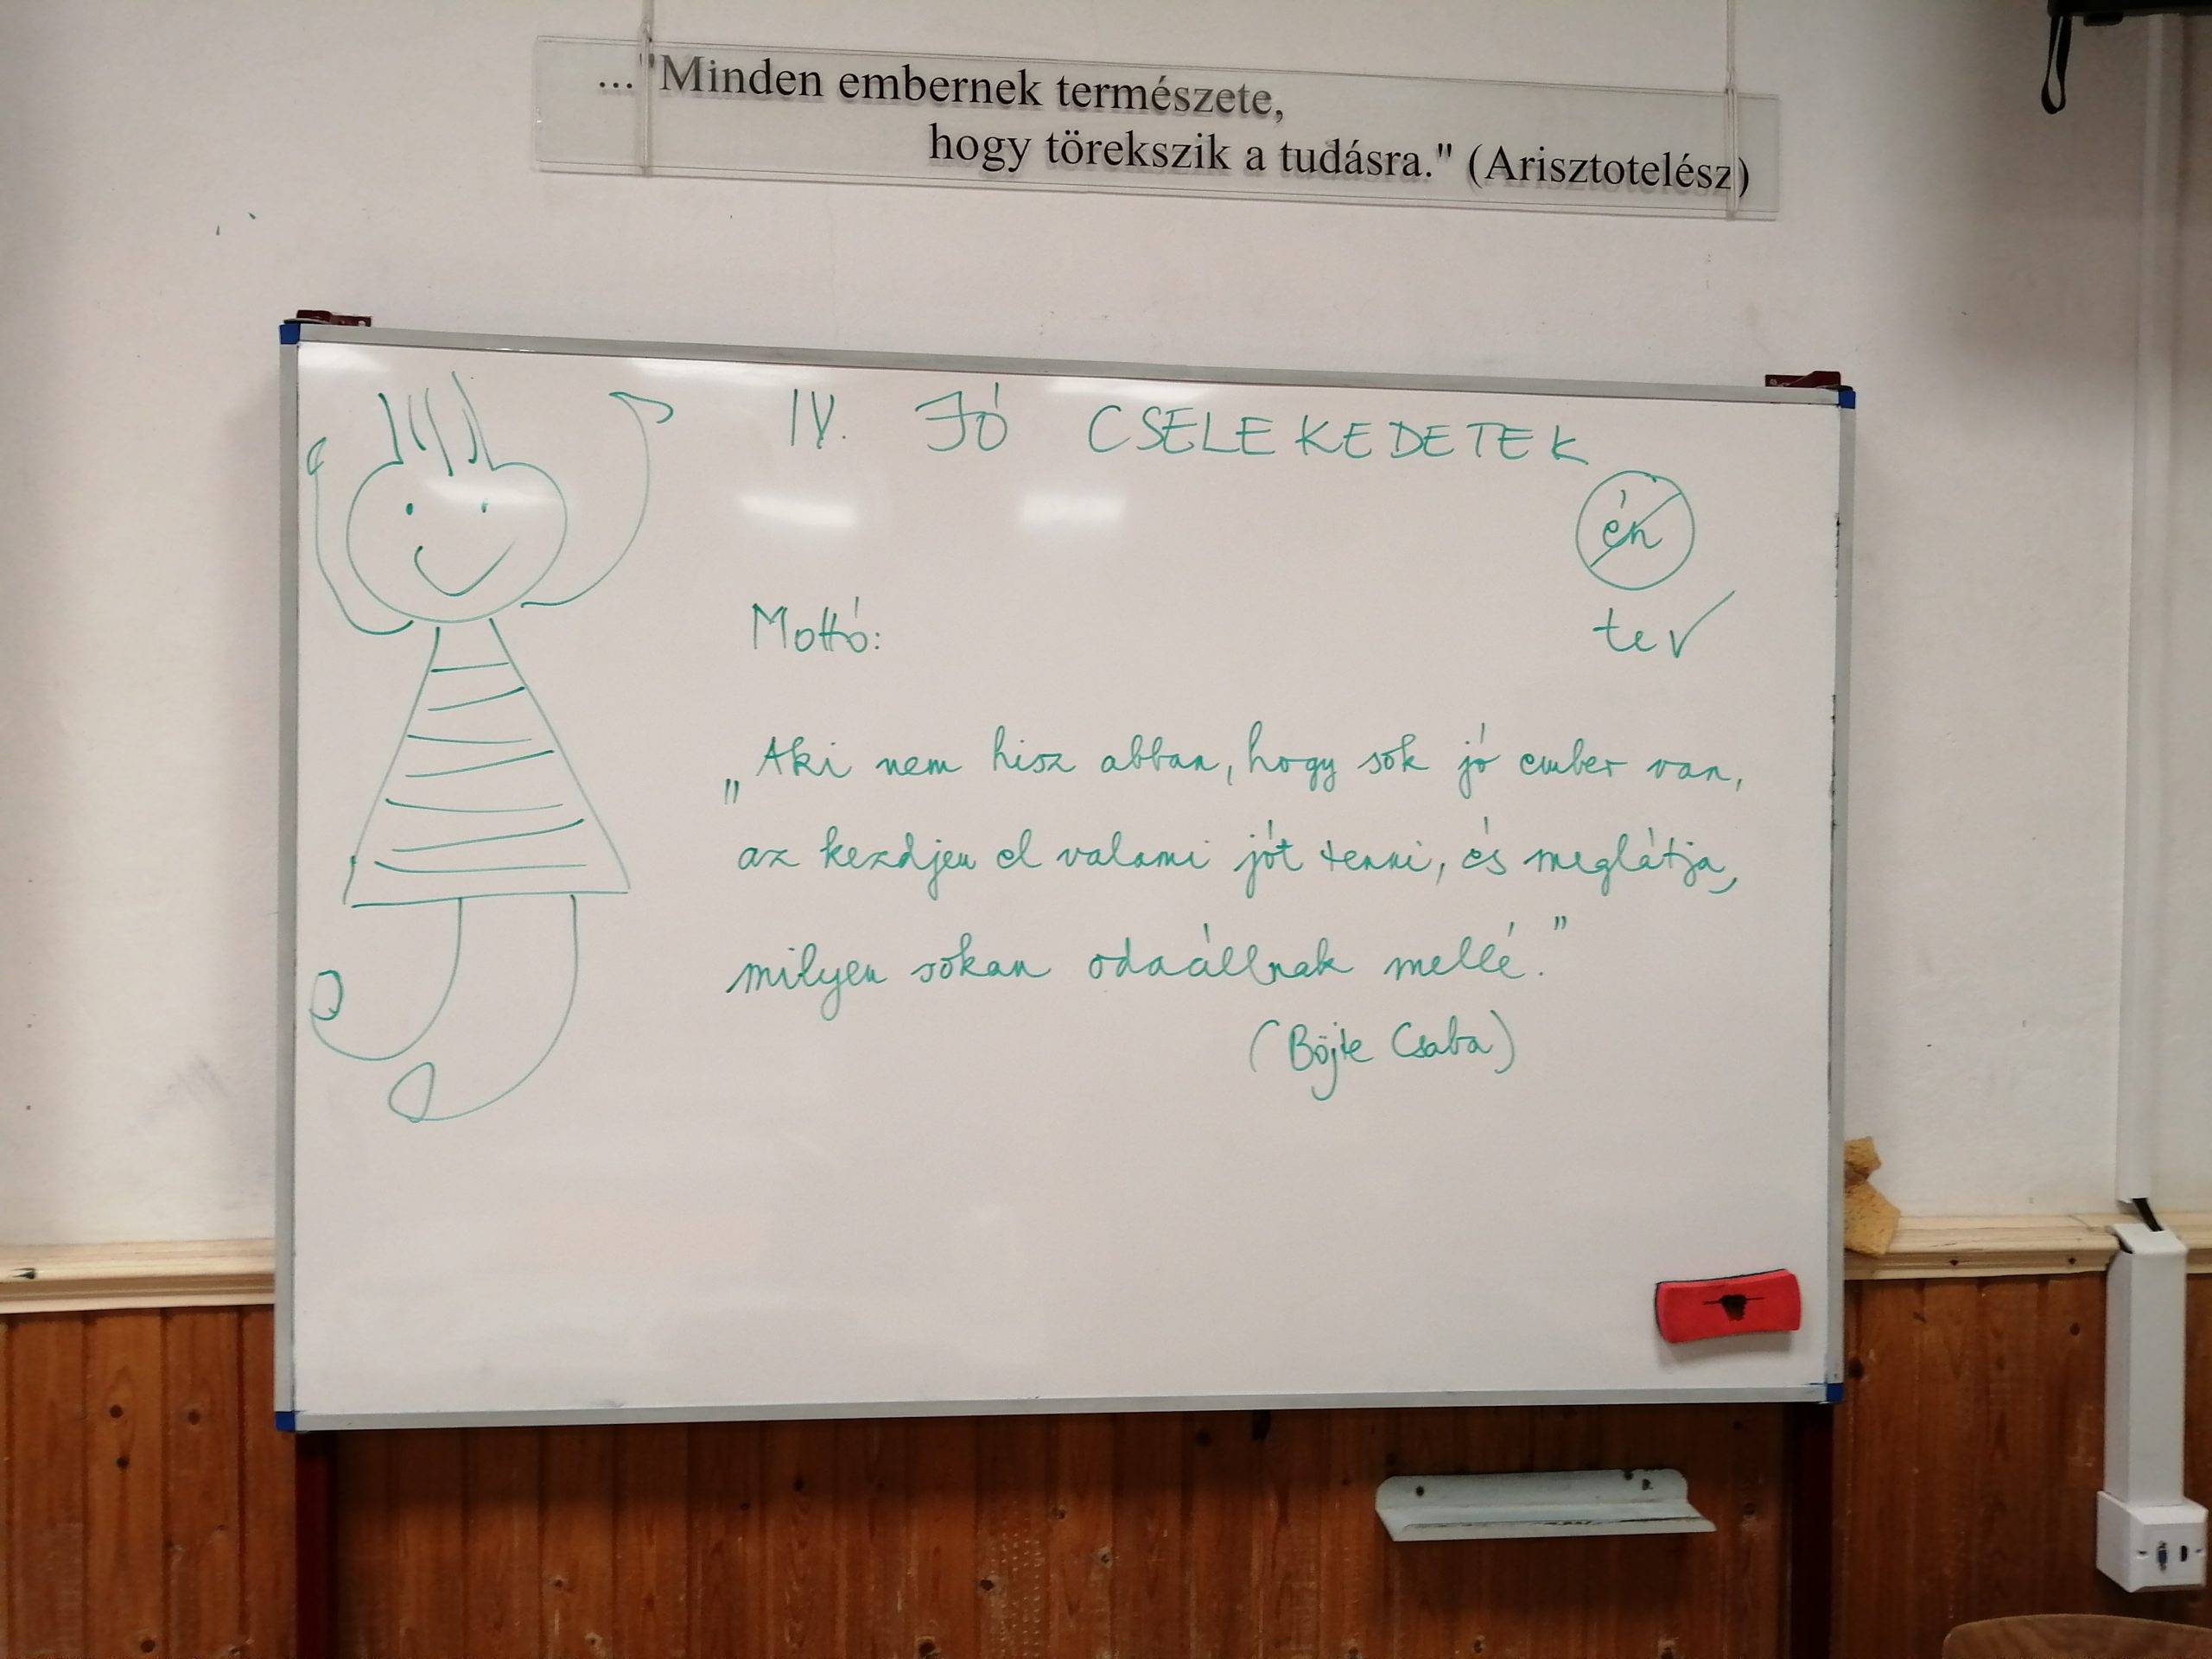 ..."Minden embernek természete,
hogy törekszik a tudásra." (Arisztotelész)
IV. JÓ CSELEKEDETEK
én
te ✓
Mottó:
„Aki nem hisz abban, hogy sok jó ember van,
az kezdjen el valami jót tenni, és meglátja,
milyen sokan odaállnak mellé.”
(Böjte Csaba)